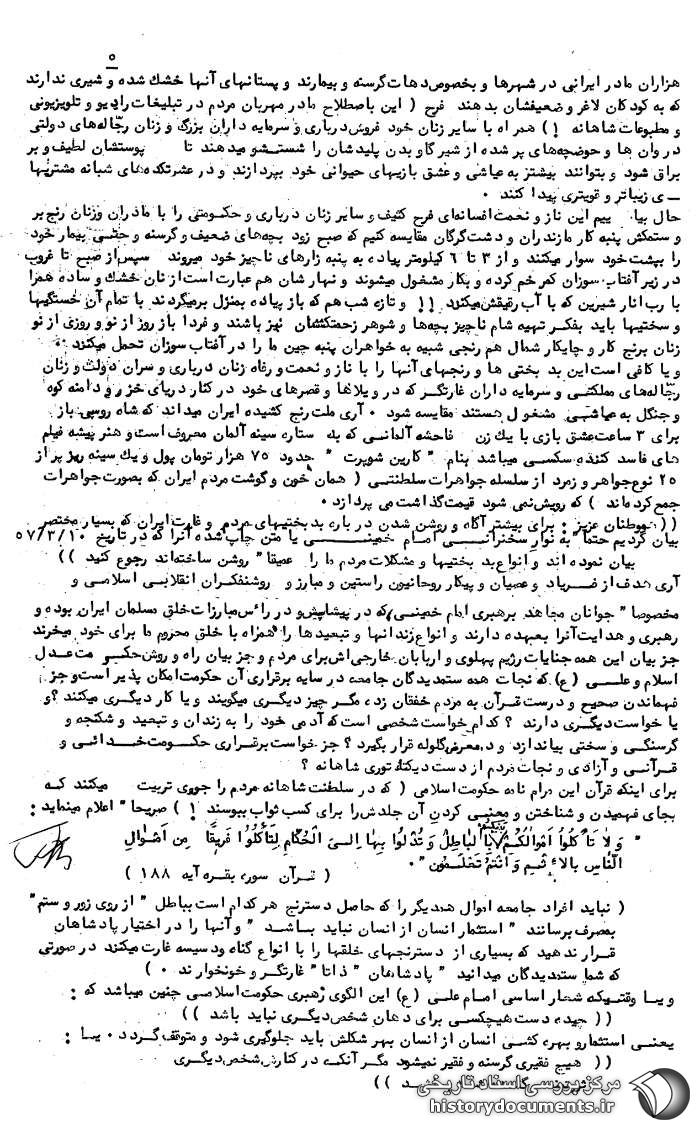 ۵
هزاران مادر ایرانی در شهرها و بخصوص دهات گرسنه و بیمارند و پستانهای آنها خشك شده و شیری ندارند
که به کودکان لاغر و ضعیفشان بدهند فرح ( این باصطلاح مادر مهربان مردم در تبلیغات رادیو و تلویزیونی
و مطبوعات شاهانه !) همراه با سایر زنان خود فروش درباری و سرمایه داران بزرگ و زنان رجاله‌های دولتی
در وان ها و حوضچه‌های پر شده از شیر گاو بدن پلیدشان را شستشو میدهند تا پوستشان لطیف و بر
براق شود و بتوانند بیشتر به عیاشی و عشق بازیهای حیوانی خود بپردازند و در عشرتکده‌های شبانه مشتریها
ــی زیباتر و قویتری پیدا کنند ۰
حال بیا ییم این ناز و نعمت افسانه‌ای فرح کثیف و سایر زنان درباری و حکومتی را با مادران وزنان رنج بر
و ستمکش پنبه کار مازندران و دشت گرگان مقایسه کنیم که صبح زود بچه‌های ضعیف و گرسنه و حتی بیمار خود
را بپشت خود سوار میکنند و از ۳ تا ۶ کیلومتر پیاده به پنبه زارهای ناچیز خود میروند سپس از صبح تا غروب
در زیر آفتاب سوزان کمر خم کرده و بکار مشغول میشوند و نهار شان هم عبارت است از نان خشك و ساده همرا
با رب انار شیرین که با آب رقیقش میکنند !! و تازه شب هم که باز پیاده بمنزل برمیگردند با تمام آن خستگیها
و سختیها باید بفکر تهیه شام ناچیز بچه‌ها و شوهر زحمتکششان نیز باشند و فردا باز روز از نو و روزی از نو
زنان برنج کار و چایکار شمال هم رنجی شبیه به خواهران پنبه چین ما را در آفتاب سوزان تحمل میکنند ۰
و یا کافی است این بد بختی ها و رنجهای آنها را با ناز و نعمت و رفاه زنان درباری و سران دولت و زنان
رجاله‌های مملکتی و سرمایه داران غارتگر که در ویلاها و قصرهای خود در کنار دریای خزر و دامنه کوه
و جنگل به عیاشی مشغول هستند مقایسه شود ۰ آری ملت رنج کشیده ایران میداند که شاه روسپی باز
برای ۳ ساعت عشق بازی با یك زن فاحشه آلمانی که به ستاره سینه آلمان معروف است و هنر پیشه فیلم
های فاسد کننده سکسی میباشد بنام " کارین شوبرت " حدود ۷۵ هزار تومان پول و یك سینه ریز پر از
۲۵ نوع جواهر و زمرد از سلسله جواهرات سلطنتی ( همان خون و گوشت مردم ایران که بصورت جواهرات
جمع کرده‌اند ) که رویش نمی شود قیمت گذاشت می پردازد ۰
(( هموطنان عزیز : برای بیشتر آگاه و روشن شدن در باره بدبختیهای مردم و غارت ایران که بسیار مختصر
بیان کردیم حتما" به نوار سخنرانی امام خمینی یا متن چاپ شده آنرا که در تاریخ ۵۷/۳/۱۰
بیان نموده اند و انواع بد بختیها و مشکلات مردم ما را عمیقا" روشن ساخته‌اند رجوع کنید ))
آری هدف از فریاد و عصیان و پیکار روحانیون راستین و مبارز و روشنفکران انقلابی اسلامی و
مخصوصا" جوانان مجاهد برهبری امام خمینی که در پیشاپیش و در راءس مبارزات خلق مسلمان ایران بوده و
رهبری و هدایت آنرا بعهده دارند و انواع زندانها و تبعیدها را همراه با خلق محروم ما برای خود میخرند
جز بیان این همه جنایات رژیم پهلوی و اربابان خارجی اش برای مردم و جز بیان راه و روش حکومت عدل
اسلام و علی (ع) که نجات همه ستمدیدگان جامعه در سایه برقراری آن حکومت امکان پذیر است و جز
فهماندن صحیح و درست قرآن به مردم خفقان زده مگر چیز دیگری میگویند و یا کار دیگری میکنند ؟ و
یا خواست دیگری دارند ؟ کدام خواست شخصی است که آدمی خود را به زندان و تبعید و شکنجه و
گرسنگی و سختی بیاندازد و در معرض گلوله قرار بگیرد ؟ جز خواست برقراری حکومت خدائی و
قرآنی و آزادی و نجات مردم از دست دیکتاتوری شاهانه ؟
برای اینکه قرآن این مرام نامه حکومت اسلامی ( که در سلطنت شاهانه مردم را جوری تربیت میکنند که
بجای فهمیدن و شناختن و معنی کردن آن جلدش را برای کسب ثواب ببوسند ! ) صریحا" اعلام مینماید :
" وَ لا تَأکُلُوا اَموالَکُم بَینَکُم بِالباطِلِ وَ تُدلُوا بِها اِلیَ الحُکّامِ لِتَأکُلُوا فَریقًا مِن اَموالِ
النّاسِ بِالاءثمِ وَ اَنتُم تَعلَمُون " ۰
( قرآن سوره بقره آیه ۱۸۸ )
( نباید افراد جامعه اموال همدیگر را که حاصل دسترنج هر کدام است بباطل " از روی زور و ستم "
بمصرف برسانند " استثمار انسان از انسان نباید باشد " و آنها را در اختیار پادشاهان
قرار ندهید که بسیاری از دسترنجهای خلقها را با انواع گناه و دسیسه غارت میکنند در صورتی
که شما ستمدیدگان میدانید " پادشاهان " ذاتا" غارتگر و خونخوارند ۰ )
و یا وقتیکه شعار اساسی امام علی (ع) این الگوی رهبری حکومت اسلامی چنین میباشد که :
(( چیده دست هیچکسی برای دهان شخص دیگری نباید باشد ))
یعنی استثمار و بهره کشی انسان از انسان بهر شکلش باید جلوگیری شود و متوقف گردد ۰ یا :
(( هیچ فقیری گرسنه و فقیر نمیشود مگر آنکه در کنارش شخص دیگری
))
مرکز بررسی اسناد تاریخی
historydocuments.ir